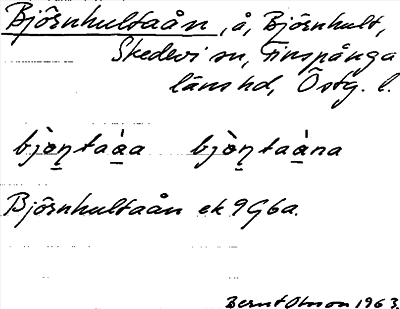 Björnhultaån, å, Björnhult,
Skedevi sn, Finspånga
läns hd, Östg. l.
bjò̠n̠taá̠a bjò̠n̠taá̠na
Björnhultaån ek 9G6a.
Bernt Olsson 1963.